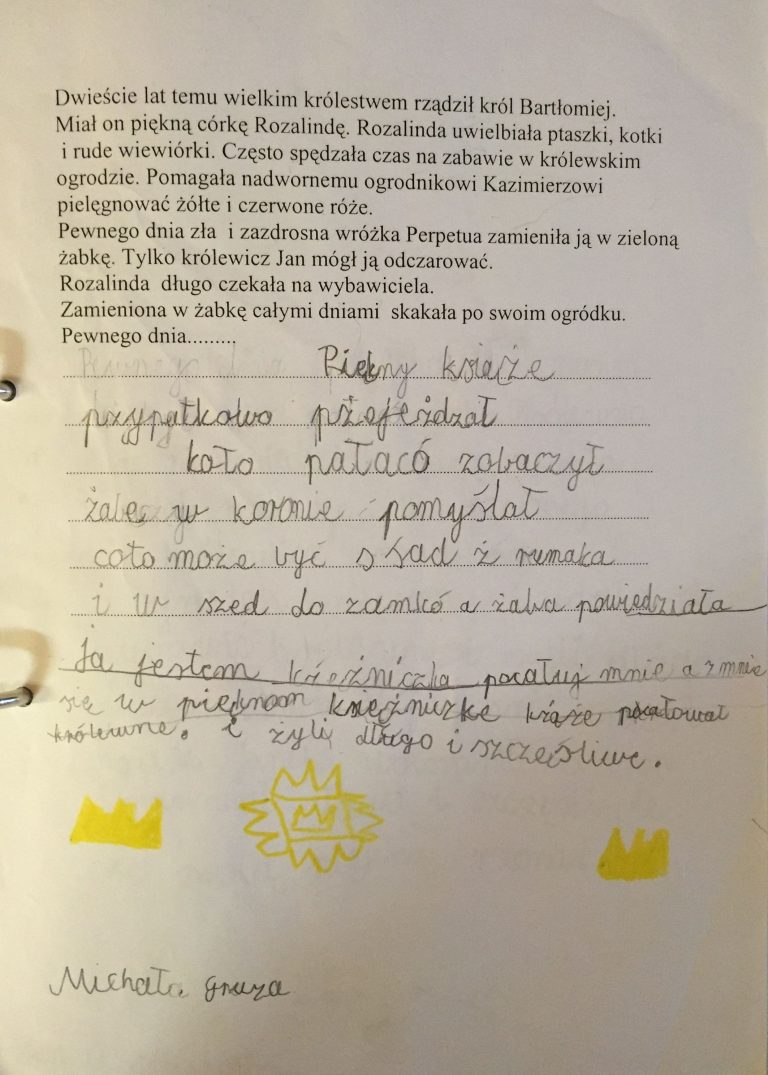 Dwieście lat temu wielkim królestwem rządził król Bartłomiej.
Miał on piękną córkę Rozalindę. Rozalinda uwielbiała ptaszki, kotki
i rude wiewiórki. Często spędzała czas na zabawie w królewskim
ogrodzie. Pomagała nadwornemu ogrodnikowi Kazimierzowi
pielęgnować żółte i czerwone róże.
Pewnego dnia zła i zazdrosna wróżka Perpetua zamieniła ją w zieloną
żabkę. Tylko królewicz Jan mógł ją odczarować.
Rozalinda długo czekała na wybawiciela.
Zamieniona w żabkę całymi dniami skakała po swoim ogródku.
Pewnego dnia.........
Piękny książe
przypatkowo pżejeżdzał
koło pałacó zobaczył
żabe w koronie pomyślał
coto może być s śad z rumaka
i w szed do zamkó a żaba powiedziała
Ja jestem pocałuj mnie a zmnie
się w pięknom księżniczke pocałował
królewne. i żyli długo i szczęśliwe.
Michała gruza